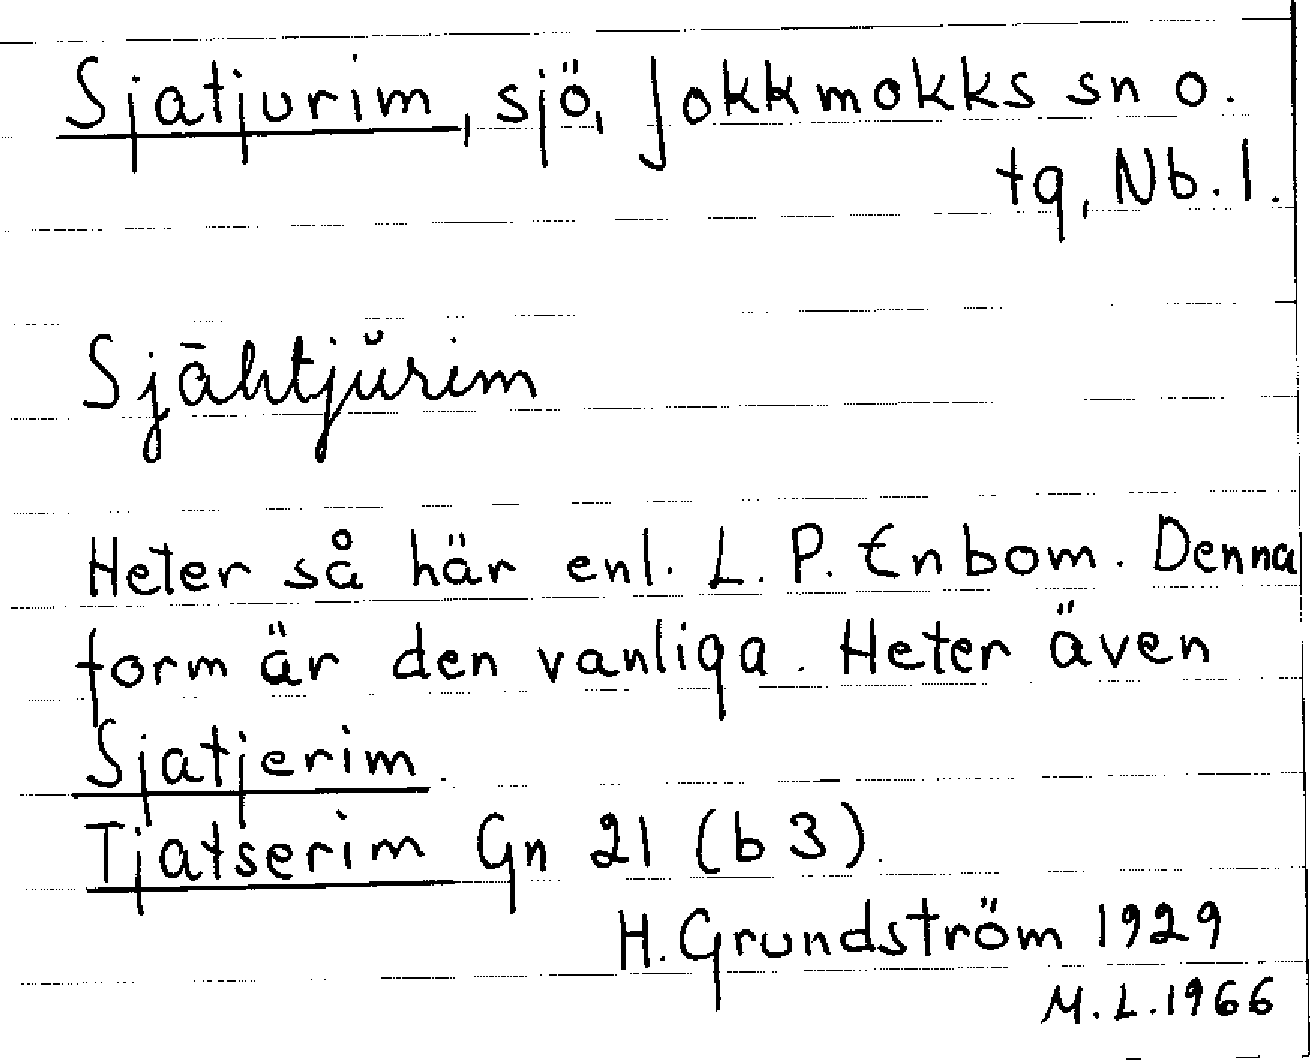 Sjatjurim, sjö, Jokkmokks sn o.
tg, Nb. l.
Sjāhtjŭrim
Heter så här enl. L. P. Enbom. Denna
form är den vanliga. Heter även
Sjatjerim.
Tjatserim Gn 21 (b 3).
H. Grundström 1929
M. L. 1966